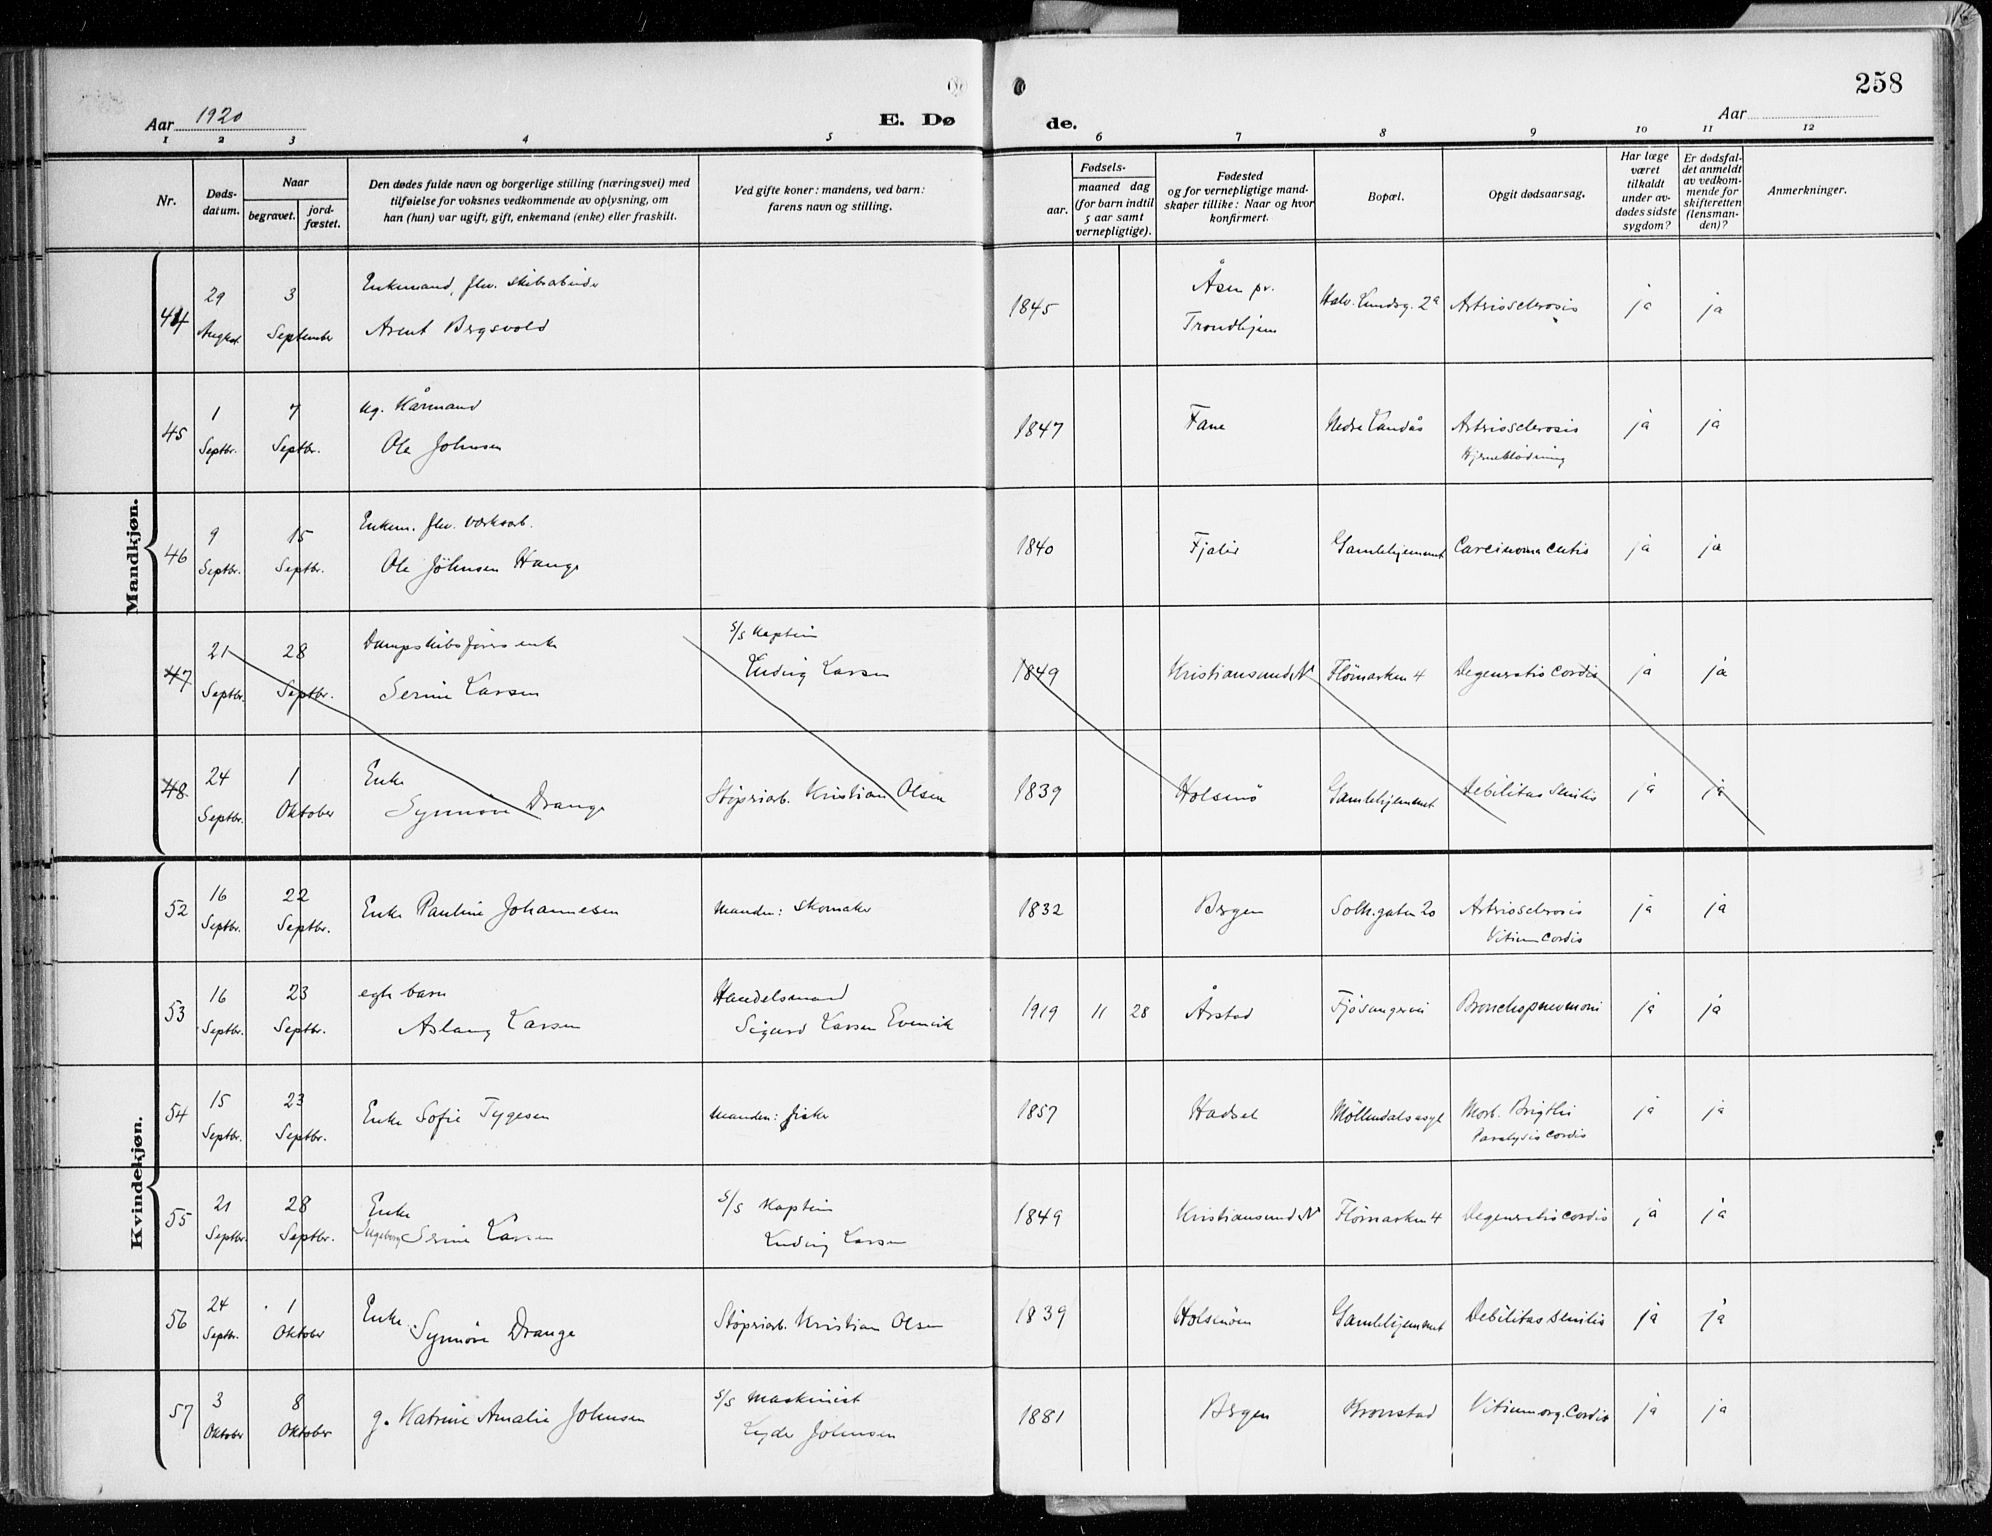 258
Aar 1920
E. Dø
de.
Aar
1 2 3 4 5 6 7 8 9 10 11 12
Nr.
Døds-
datum.
Naar
begravet.
jord-
fæstet.
Den dødes fulde navn og borgerlige stilling (næringsvei) med
tilføielse for voksnes vedkommende av oplysning, om
han (hun) var ugift, gift, enkemand (enke) eller fraskilt.
Ved gifte koner: mandens, ved barn:
farens navn og stilling.
Fødsels-
aar.
maaned dag
(for barn indtil
5 aar samt
vernepligtige).
Fødested
og for vernepligtige mand-
skaper tillike: Naar og hvor
konfirmert.
Bopæl.
Opgit dødsaarsag.
Har læge
været
tilkaldt
under av-
dødes sidste
sygdom?
Er dødsfal-
det anmeldt
av vedkom-
mende for
skifteretten
(lensman-
den)?
Anmerkninger.
Mandkjøn.
44 29 August 3 September
Enkemand, fhv. skibsarbeider
Arent Bergsvold
1845 Åsen pr. Trondhjem
Halv. Lundsg. 2a
Artriosclerosis
ja ja
45 1 Septbr. 7 Septbr.
ug. Kårmand
Ole Johnsen
1847 Fane
Nedre Landås
Artriosclerosis
Hjerneblødning
ja ja
46 9 Septbr. 15 Septbr.
Enkem. fhv. værksarb.
Ole Johnsen Hauge
1840 Fjaler
Gamlehjemmet
Carcinoma cutis
ja ja
47 21 Septbr. 28 Septbr.
Dampskibsførers enke
Serine Larsen
s/s Kaptein
Ludvig Larsen
1849 Kristiansund N
Flömarken 4
Degeneratio cordis
ja ja
48. 24 Septbr. 1 Oktober
Enke
Synnöve Drange
Støperiarb. Kristian Olsen
1839 Holsenö
Gamlehjemmet
Debilitas senilis
ja ja
Kvindekjøn.
52 16 Septbr. 22 Septbr.
Enke Pauline Johannesen
Manden: skomaker
1832 Bergen
Solh.gaten 20
Artriosclerosis
Vitium cordis
ja ja
53 16 Septbr. 23 Septbr.
egte barn
Aslaug Larsen
Handelsmand
Sigurd Larsen Evenvik
1919 11 28 Årstad
Fjösangervei
Bronchopneumoni
ja ja
54 15 Septbr. 23 Septbr.
Enke Sofie Tygesen
Manden: fisker
1857 Hadsel
Möllendalsasyl
Morb. Brigthi
Paralysis cordis
ja ja
55 21 Septbr. 28 Septbr.
Enke
Ingeborg Serine Larsen
s/s Kaptein
Ludvig Larsen
1849 Kristiansund N
Flömarken 4
Degeneratio cordis
ja ja
56 24 Septbr. 1 Oktober
Enke
Synnöve Drange
Støperiarb. Kristian Olsen
1839 Holsenöen
Gamlehjemmet
Debilitas senilis
ja ja
57 3 Oktober 8 Oktober
g. Katrine Amalie Johnsen
s/s Maskinist
Lyder Johnsen
1881 Bergen
Kronstad
Vitium org. Cordis
ja ja